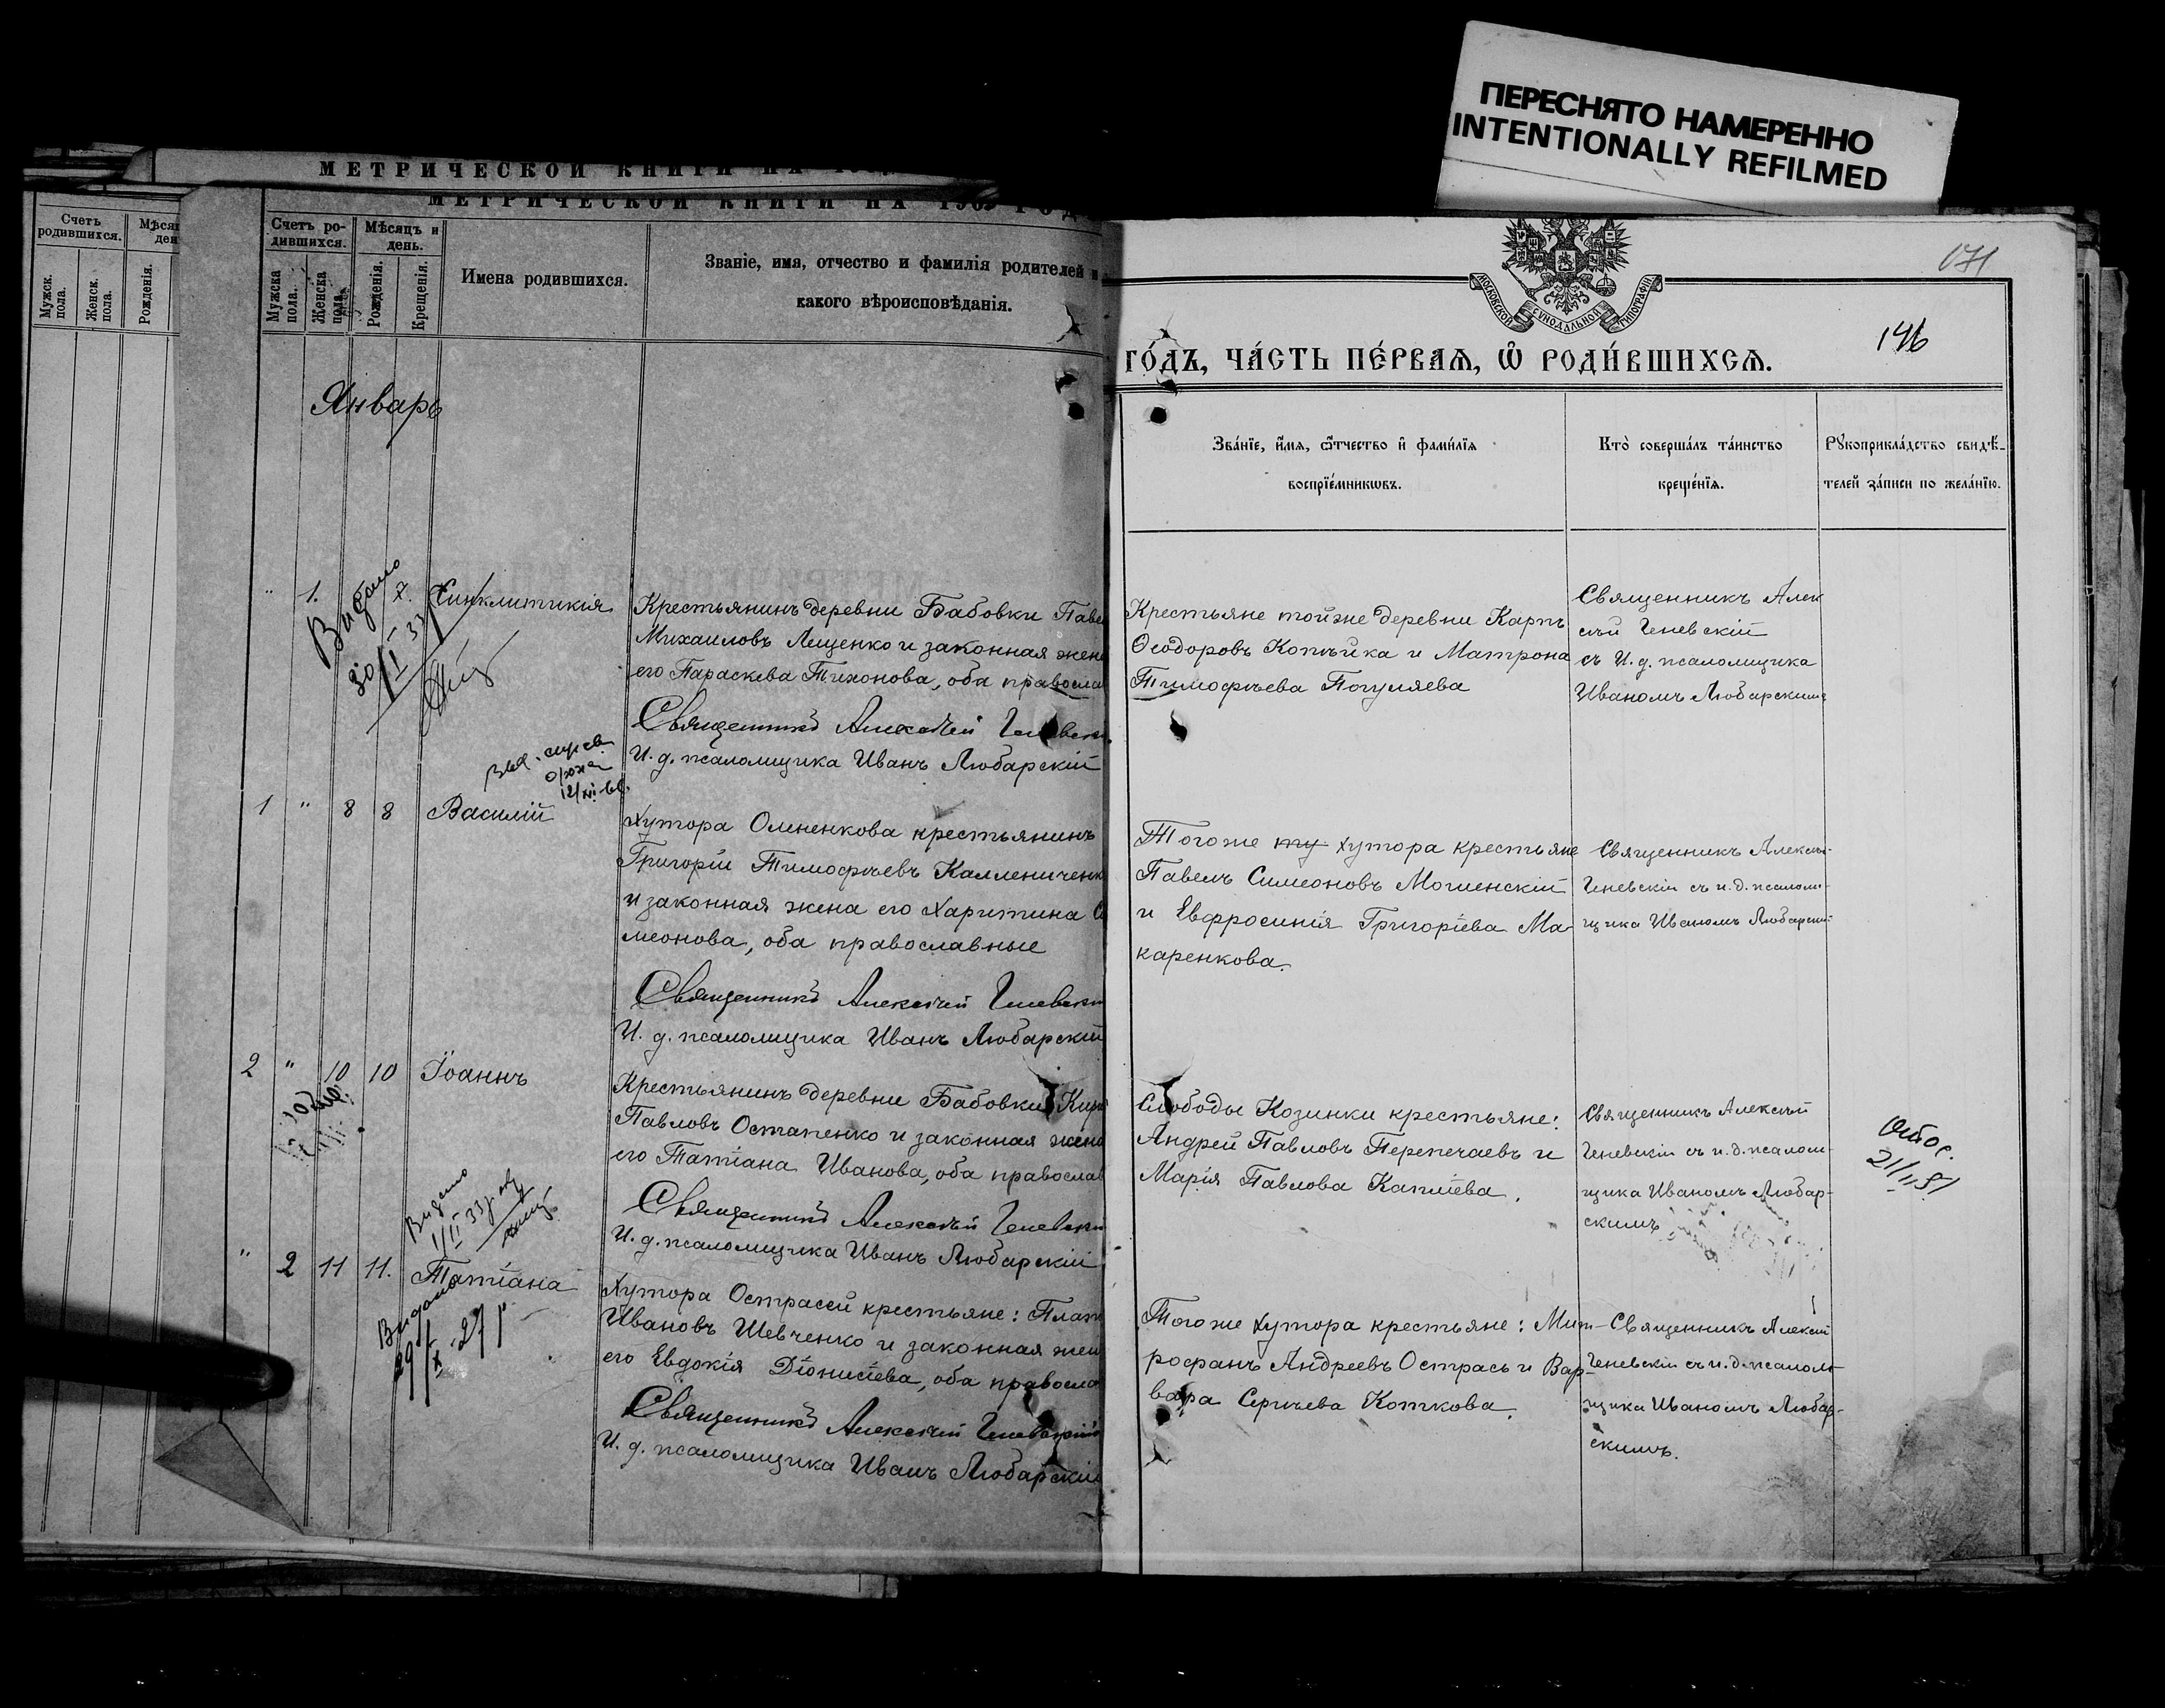 ПЕРЕСНЯТО НАМЕРЕННО
INTENTIONALLY REFILMED
МЕТРИЧЕСКОЙ КНИГИ НА
МЕТРИЧЕСКОЙ КНИГИ НА 190
Счетъ родившихся.
Мужск. пола.
Женск. пола.
Рожденія.
Счетъ ро-
дившихся.
Мѣсяцъ и
день.
Мужска пола.
Женска пола.
Рожденія.
Крещенія.
Имена родившихся.
Званіе, имя, отчество и фамилія родителей и
какого вѣроисповѣданія.
Январь
" 1. 7. Синклитикія
Видано
30/I 33
Крестьянинъ деревни Бабовки Паве
Михаиловъ Лещенко и законная жена
его Параскева Тихонова, оба правосла
Священникъ Алексѣй Геневскі
И. д. псаломщика Иванъ Любарскій
1 " 8 8 Василій
Хутора Олененкова крестьянинъ
Григорій Тимофѣевъ Каллениченк
и законная жена его Харитина С
меонова, оба православные
Священникъ Алексѣй Геневскі
И. д. псаломщика Иванъ Любарскій
2 " 10 10 Іоаннъ
Крестьянинъ деревни Бабовки Кир
Павловъ Остапенко и законная жена
его Татіана Иванова, оба православ
Священникъ Алексѣй Геневскі
И. д. псаломщика Иванъ Любарскій
" 2 11 11. Татіана
Видано
Хутора Острасей крестьяне: Плат
Ивановъ Шевченко и законная жен
его Евдокія Діонисіева, оба правосла
Священникъ Алексѣй Геневскій
И. д. псаломщика Иванъ Любарскій
171
146
МОСКОВСКОЙ СѴНОДАЛЬНОЙ ТИПОГРАФІИ
ГО́ДЪ, ЧА́СТЬ ПЕ́РВАѦ, Ѡ҆ РОДИ́ВШИХСѦ.
Зва́нїе, и҆́мѧ, ѻ҆́тчество и҆ фами́лїѧ
воспрїе́мникѡвъ.
Кто̀ соверша́лъ та́инство
креще́нїѧ.
Рꙋкоприкла́дство свидѣ́-
телей за́писи по жела́нїю.
Крестьяне тойже деревни Карпъ
Ѳеодоровъ Копѣйка и Матрона
Тимофѣева Погуляева
Священникъ Алек
сѣй Геневскій
съ И. д. псаломщика
Иваномъ Любарскимъ
Тогоже ту хутора крестьяне
Павелъ Симеоновъ Могиенскій
и Евфросинія Григоріева Ма-
каренкова.
Священникъ Алексѣй
Геневскій съ и. д. псалом-
щика Иваномъ Любарски
Слободы Козинки крестьяне:
Андрей Павловъ Перепечаевъ и
Марія Павлова Капліева.
Священникъ Алексѣй
Геневскій съ и. д. псалом-
щика Иваномъ Любар-
скимъ
21/I 51
Тогоже хутора крестьяне: Мит-
рофанъ Андреевъ Острась и Вар-
вара Сергѣева Коткова.
Священникъ Алексѣй
Геневскій съ и. д. псалом-
щика Иваномъ Любар-
скимъ.